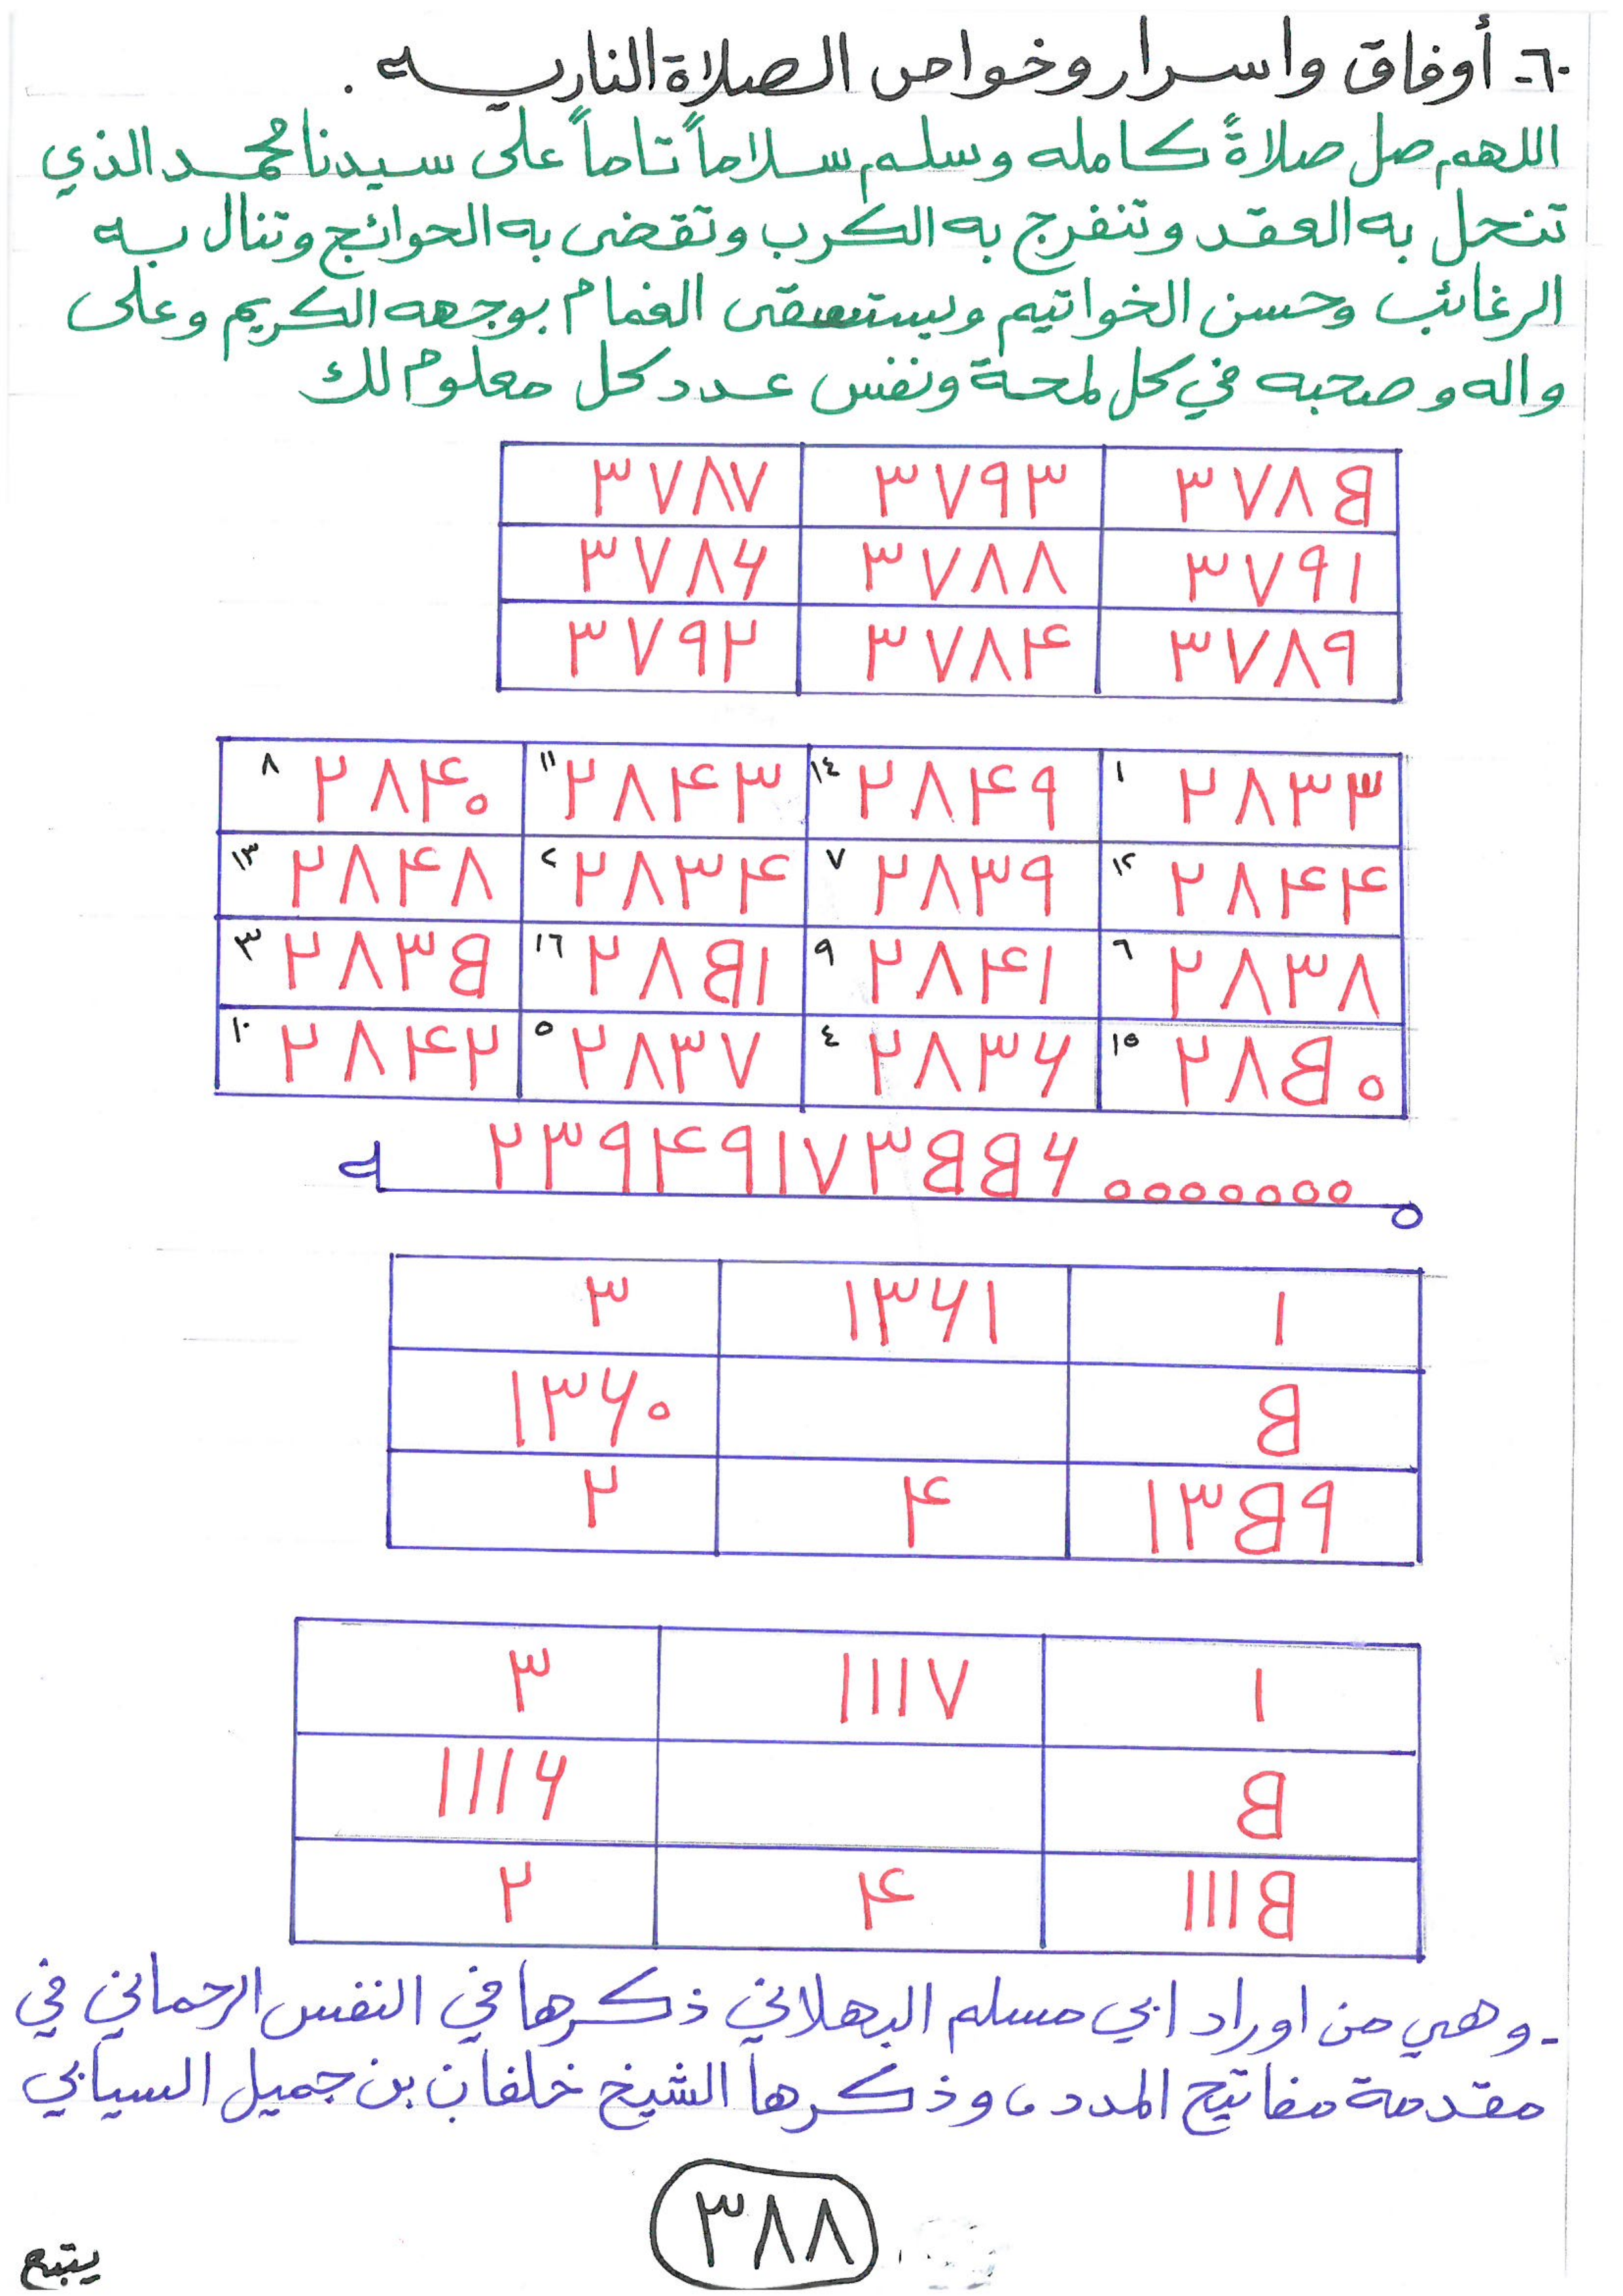 ٦٠- أوفاق واسرار وخواص الصلاة الناريه .
اللهم صل صلاةً كامله وسلم سلاماً تاماً على سيدنا محمد الذي
تنحل به العقد وتنفرج به الكرب وتقضى به الحوائج وتنال به
الرغائب وحسن الخواتيم ويستسقى الغمام بوجهه الكريم وعلى
واله وصحبه في كل لمحة ونفس عدد كل معلوم لك
٣٧٨۵ ٣٧٩٣ ٣٧٨٧
٣٧٩١ ٣٧٨٨ ٣٧٨۶
٣٧٨٩ ٣٧٨۴ ٣٧٩٢
١ ٢٨٣٣ ١٤ ٢٨۴٩ ١١ ٢٨۴٣ ٨ ٢٨۴٠
١٢ ٢٨۴۴ ٧ ٢٨٣٩ ٢ ٢٨٣۴ ١٣ ٢٨۴٨
٦ ٢٨٣٨ ٩ ٢٨۴١ ١٦ ٢٨۵١ ٣ ٢٨٣۵
١٥ ٢٨۵٠ ٤ ٢٨٣۶ ٥ ٢٨٣٧ ١٠ ٢٨۴٢
٢٣٩۴٩١٧٣۵۵۶٠٠٠٠٠٠٠
١ ١٣۶١ ٣
۵ ١٣۶٠
١٣۵٩ ۴ ٢
١ ١١١٧ ٣
۵ ١١١۶
١١١۵ ۴ ٢
- وهي من اوراد ابي مسلم البهلاني ذكرها في النفس الرحماني في
مقدمة مفاتيح المدد ، وذكرها الشيخ خلفان بن جميل السيابي
٣٨٨
يتبع